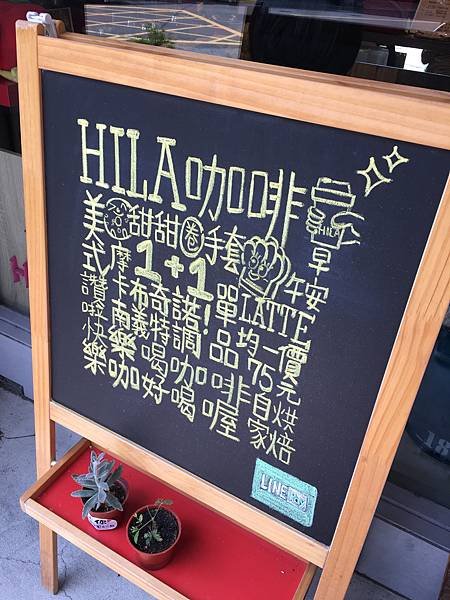 HILA咖啡
HILA
美甜甜圈手套早
式摩1+1午安
讚卡布奇諾!單LATTE
南義特調品均一價
快樂喝咖啡75元
樂咖好喝喔自家烘焙
LINE